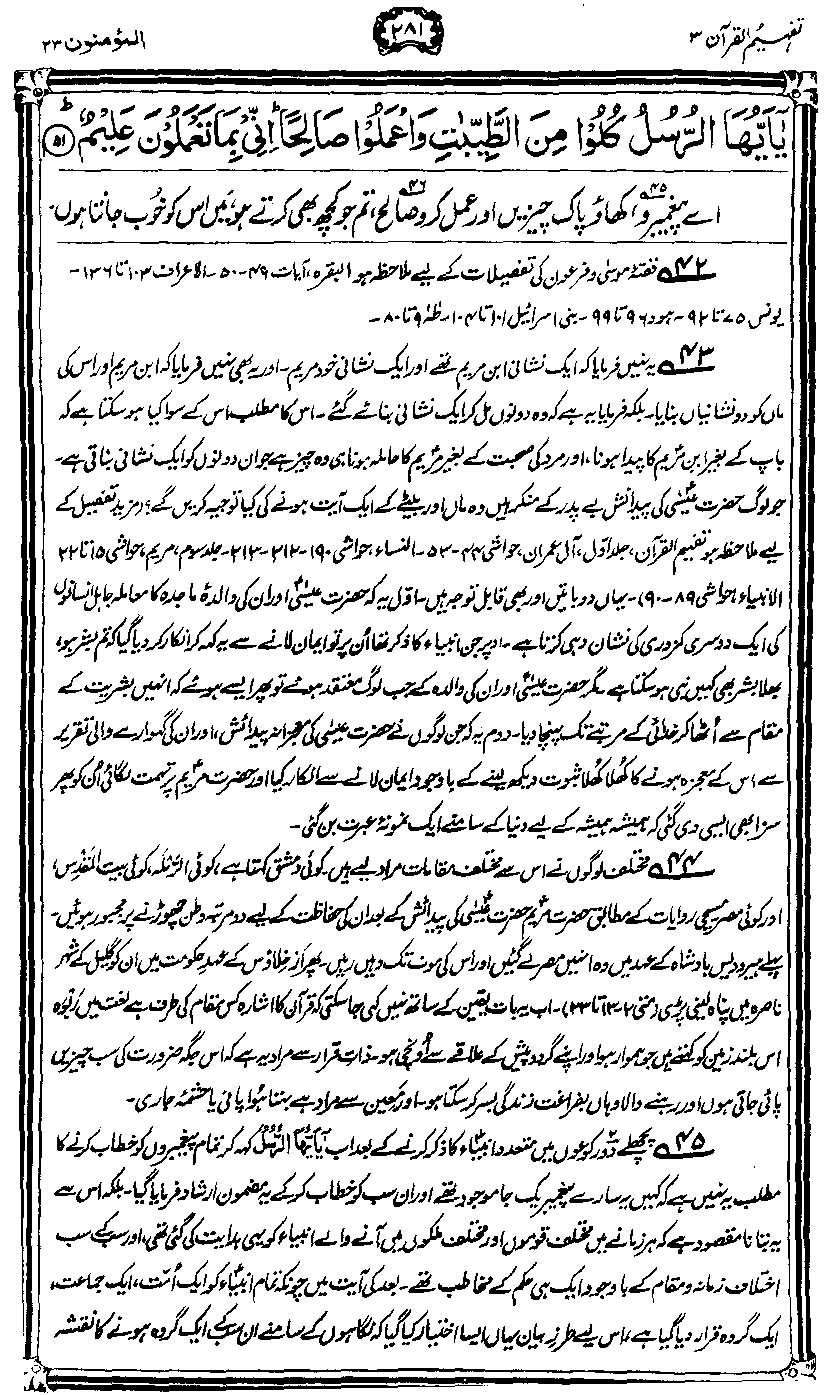 تفہیم القرآن ۳
۲۸۱
المؤمنون ۲۳
يٰٓاَيُّهَا الرُّسُلُ كُلُوْا مِنَ الطَّيِّبٰتِ وَاعْمَلُوْا صَالِحًا ؕ اِنِّيْ بِمَا تَعْمَلُوْنَ عَلِيْمٌ ؕ ﴿۵۱﴾
اے پیغمبرو،۴۵ کھاؤ پاک چیزیں اور عمل کرو صالح،۴۶ تم جو کچھ بھی کرتے ہو، میں اس کو خوب جانتا ہوں۔
۴۲ قصّۂ موسیٰ و فرعون کی تفصیلات کے لیے ملاحظہ ہو البقرہ، آیات ۴۹-۵۰۔ الاعراف ۱۰۳ تا ۱۳۶۔
یونس ۷۵ تا ۹۲۔ ہود ۹۶ تا ۹۹۔ بنی اسرائیل ۱۰۱ تا ۱۰۴۔ طٰہٰ ۹ تا ۸۰۔
۴۳ یہ نہیں فرمایا کہ ایک نشانی ابن مریم تھے اور ایک نشانی خود مریم۔ اور یہ بھی نہیں فرمایا کہ ابن مریم اور اس کی
ماں کو دو نشانیاں بنایا۔ بلکہ فرمایا یہ ہے کہ وہ دونوں مل کر ایک نشانی بنائے گئے۔ اس کا مطلب اس کے سوا کیا ہو سکتا ہے کہ
باپ کے بغیر ابن مریم کا پیدا ہونا، اور مرد کی صحبت کے بغیر مریم کا حاملہ ہونا ہی وہ چیز ہے جو ان دونوں کو ایک نشانی بناتی ہے۔
جو لوگ حضرت عیسیٰؑ کی پیدائش بے پدر کے منکر ہیں وہ ماں اور بیٹے کے ایک آیت ہونے کی کیا توجیہ کریں گے؟ (مزید تفصیل کے
لیے ملاحظہ ہو تفہیم القرآن، جلد اول، آل عمران، حواشی ۴۴-۵۳۔ النساء، حواشی ۱۹۰-۲۱۲-۲۱۳۔ جلد سوم، مریم، حواشی ۱۵ تا ۲۲
الانبیاء، حواشی ۸۹-۹۰)۔ یہاں دو باتیں اور بھی قابل توجہ ہیں۔ اول یہ کہ حضرت عیسیٰؑ اور ان کی والدۂ ماجدہ کا معاملہ جاہل انسانوں
کی ایک دوسری کمزوری کی نشان دہی کرتا ہے۔ اوپر جن انبیاء کا ذکر تھا اُن پر تو ایمان لانے سے یہ کہہ کر انکار کر دیا گیا کہ تم بشر ہو،
بھلا بشر بھی کہیں نبی ہو سکتا ہے۔ مگر حضرت عیسیٰؑ اور ان کی والدہ کے جب لوگ معتقد ہوئے تو پھر ایسے ہوئے کہ انہیں بشریت کے
مقام سے اُٹھا کر خدائی کے مرتبے تک پہنچا دیا۔ دوم یہ کہ جن لوگوں نے حضرت عیسیٰ کی معجزانہ پیدائش، اور ان کی گہوارے والی تقریر
سے اس کے معجزہ ہونے کا کھلا کھلا ثبوت دیکھ لینے کے باوجود ایمان لانے سے انکار کیا اور حضرت مریمؑ پر تہمت لگائی اُن کو پھر
سزا بھی ایسی دی گئی کہ ہمیشہ ہمیشہ کے لیے دنیا کے سامنے ایک نمونۂ عبرت بن گئی۔
۴۴ مختلف لوگوں نے اس سے مختلف مقامات مراد لیے ہیں۔ کوئی دمشق کہتا ہے، کوئی الرَّملہ، کوئی بیت المَقْدِس،
اور کوئی مصر۔ مسیحی روایات کے مطابق حضرت مریمؑ حضرت عیسیٰؑ کی پیدائش کے بعد ان کی حفاظت کے لیے دو مرتبہ وطن چھوڑنے پر مجبور ہوئیں۔
پہلے ہیرودیس بادشاہ کے عہد میں وہ انہیں مصر لے گئیں اور اس کی موت تک وہیں رہیں۔ پھر اَرخلاؤس کے عہدِ حکومت میں ان کو گلیل کے شہر
ناصرہ میں پناہ لینی پڑی (متی ۲-۱۳ تا ۲۳)۔ اب یہ بات یقین کے ساتھ نہیں کہی جا سکتی کہ قرآن کا اشارہ کس مقام کی طرف ہے۔ لغت میں رَبْوَہ
اس بلند زمین کو کہتے ہیں جو ہموار ہو اور اپنے گرد و پیش کے علاقے سے اُونچی ہو۔ ذاتِ قرار سے مراد یہ ہے کہ اس جگہ ضرورت کی سب چیزیں
پائی جاتی ہوں اور رہنے والا وہاں بفراغت زندگی بسر کر سکتا ہو۔ اور مَعین سے مراد ہے بہتا ہُوا پانی یا چشمۂ جاری۔
۴۵ پچھلے دو رکوعوں میں متعدد انبیاء کا ذکر کرنے کے بعد اب يٰٓاَيُّهَا الرُّسُلُ کہہ کر تمام پیغمبروں کو خطاب کرنے کا
مطلب یہ نہیں ہے کہ کہیں یہ سارے پیغمبر یک جا موجود تھے اور ان سب کو خطاب کر کے یہ مضمون ارشاد فرمایا گیا۔ بلکہ اس سے
یہ بتانا مقصود ہے کہ ہر زمانے میں مختلف قوموں اور مختلف ملکوں میں آنے والے انبیاء کو یہی ہدایت کی گئی تھی، اور سب کے سب
اختلافِ زمانہ و مقام کے باوجود ایک ہی حکم کے مخاطب تھے۔ بعد کی آیت میں چونکہ تمام انبیاء کو ایک اُمّت، ایک جماعت،
ایک گروہ قرار دیا گیا ہے، اس لیے طرزِ بیان یہاں ایسا اختیار کیا گیا کہ نگاہوں کے سامنے ان سب کے ایک گروہ ہونے کا نقشہ